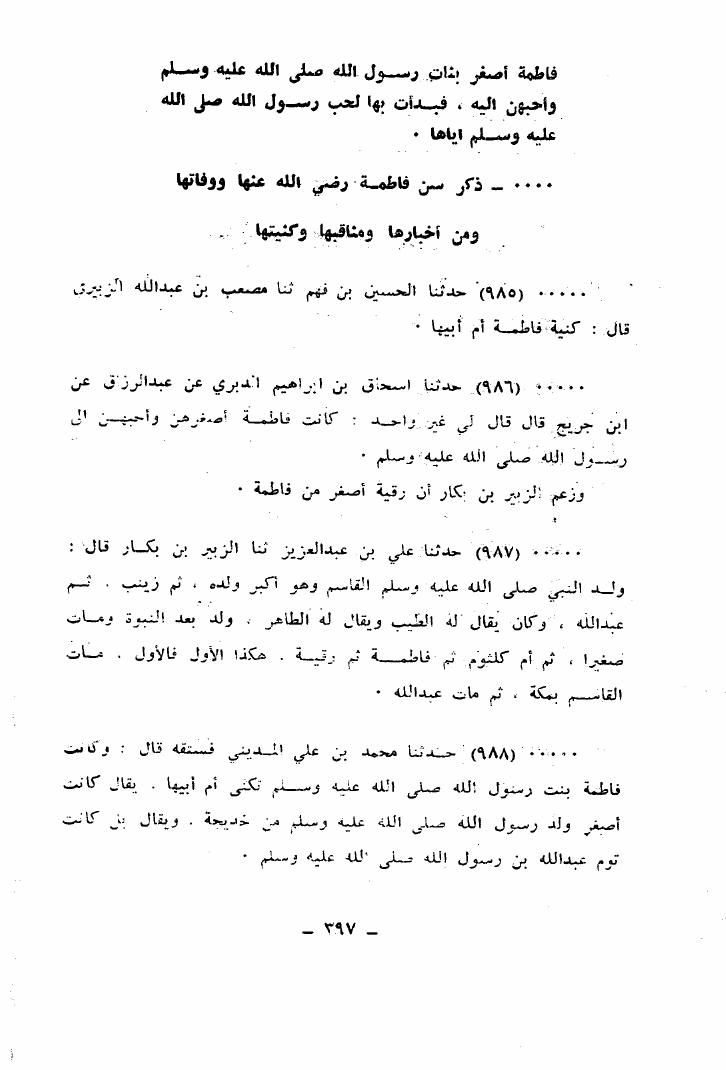 فاطمة أصغر بنات رســول الله صلى الله عليه وســلم
وأحبهن اليه ، فبــدأت بها لحب رســول الله صلى الله
عليه وســلم اياها ٠
٠٠٠٠ ــ ذكر سن فاطمــة رضي الله عنها ووفاتها
ومن أخبارها ومناقبها وكنيتها
٠٠٠٠٠ (٩٨٥) حدثنا الحسين بن فهم ثنا مصعب بن عبدالله الزبيري
قال : كنية فاطمــة أم أبيها ٠
٠٠٠٠٠ (٩٨٦) حدثنا اسحاق بن ابراهيم الدبري عن عبدالرزاق عن
ابن جريج قال قال لي غير واحــد : كانت فاطمــة أصغرهن وأحبهــن الى
رســول الله صلى الله عليه وسلم ٠
وزعم الزبير بن بكار أن رقية أصغر من فاطمة ٠
٠٠٠٠٠ (٩٨٧) حدثنا علي بن عبدالعزيز ثنا الزبير بن بكــار قال :
ولــد النبي صلى الله عليه وسلم القاسم وهو أكبر ولده ، ثم زينب . ثــم
عبدالله ، وكان يقال له الطيب ويقال له الطاهر ، ولد بعد النبوة ومــات
صغيرا ، ثم أم كلثوم ثم فاطمــة ثم رقيــة . هكذا الأول فالأول . مــات
القاســم بمكة ، ثم مات عبدالله ٠
٠٠٠٠٠ (٩٨٨) حــدثنا محمد بن علي المــديني فستقه قال : وكانت
فاطمة بنت رسول الله صلى الله عليه وســلم تكنى أم أبيها . يقال كانت
أصغر ولد رسول الله صلى الله عليه وسلم من خديجة . ويقال بل كانت
توم عبدالله بن رسول الله صلى الله عليه وسلم ٠
ــ ٣٩٧ ــ